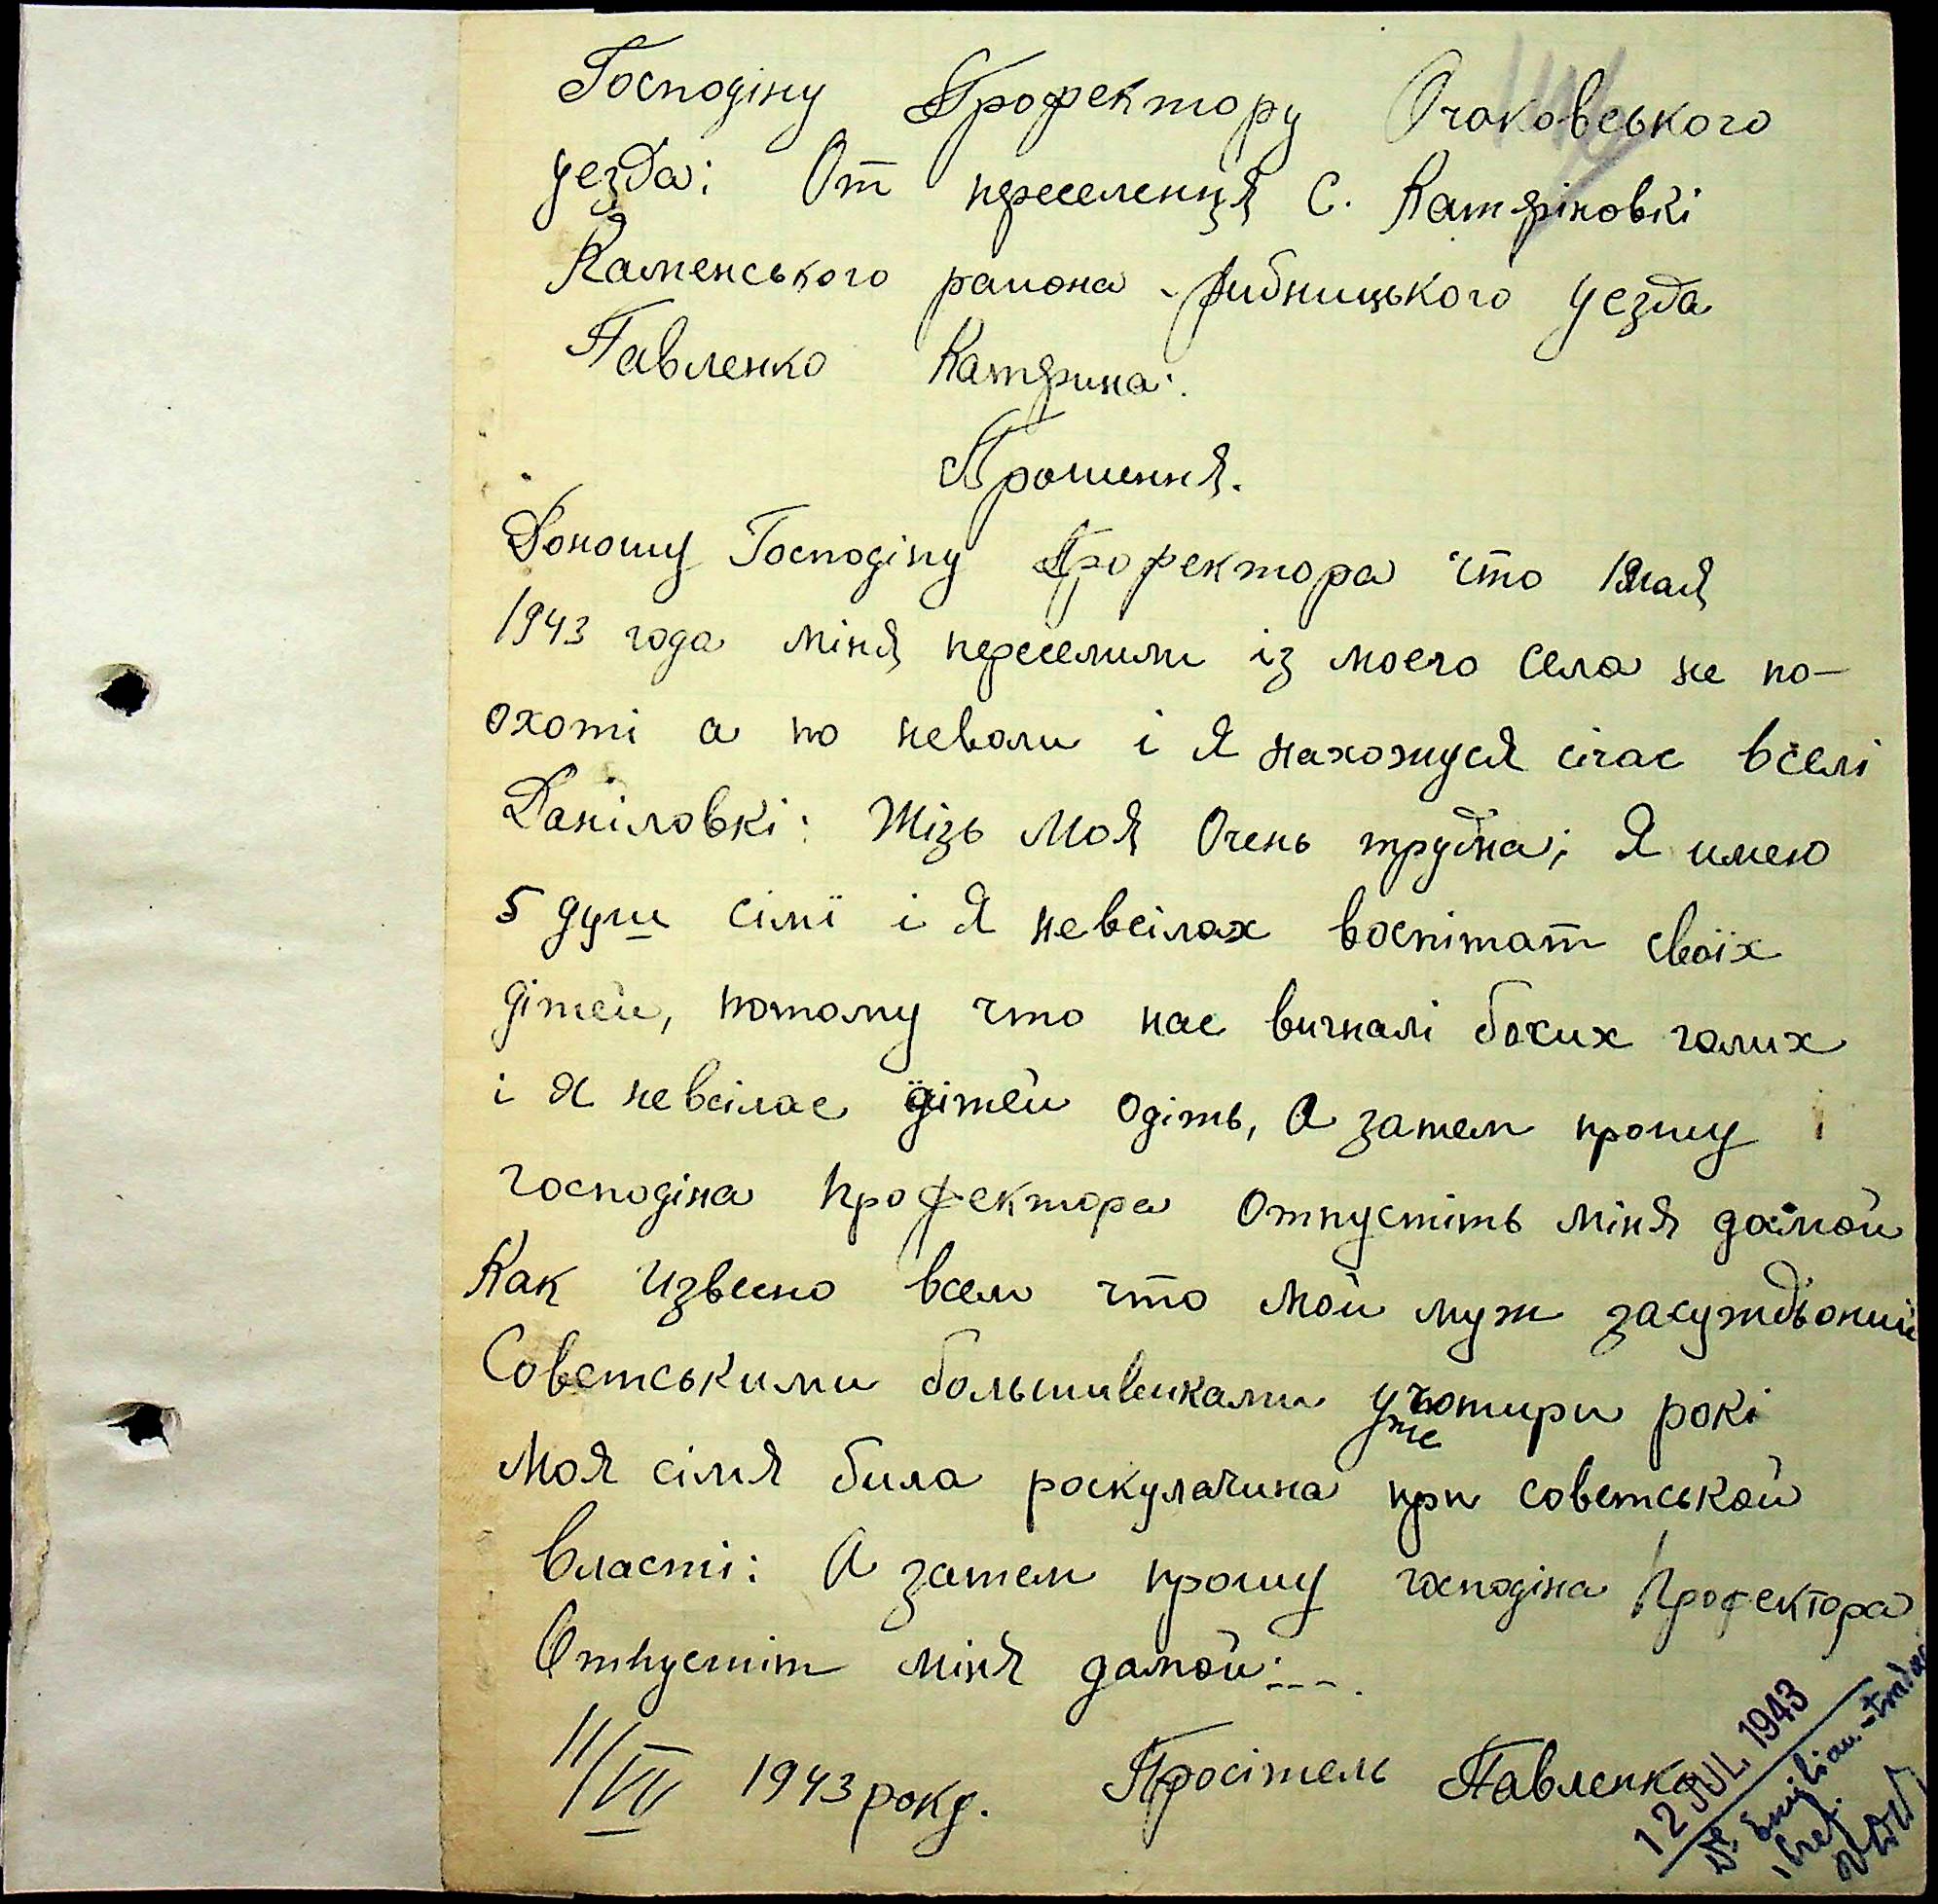 Господіну Профектору Очаковського
уезда: От переселенця С. Катяріновкі
Каменського раиона Рибницького уезда
Павленко Катярина:
Прошиння.
Доношу Господіну Профектора что 1 мая
1943 года міня переселили із моего села не по-
охоті а по неволи і я нахожуся січас вселі
Даніловкі: Жізь моя Очень трудна; Я имею
5 душ сімї і я невсілах воспітат своїх
дітей, потому что нас вигналі босих голих
і я невсілас дітей одіть, А затем прошу
господіна профектора отпустіть міня дамой
Как извесно всем что мой муж засуждьоний
Советськими большивиками уже чотири рокі
моя сімя била роскулачина при советськой
власті: А затем прошу господіна Профектора
Отпустіт міня дамой:---.
11/VII 1943 року. Просітель Павленко
12 JUL. 1943